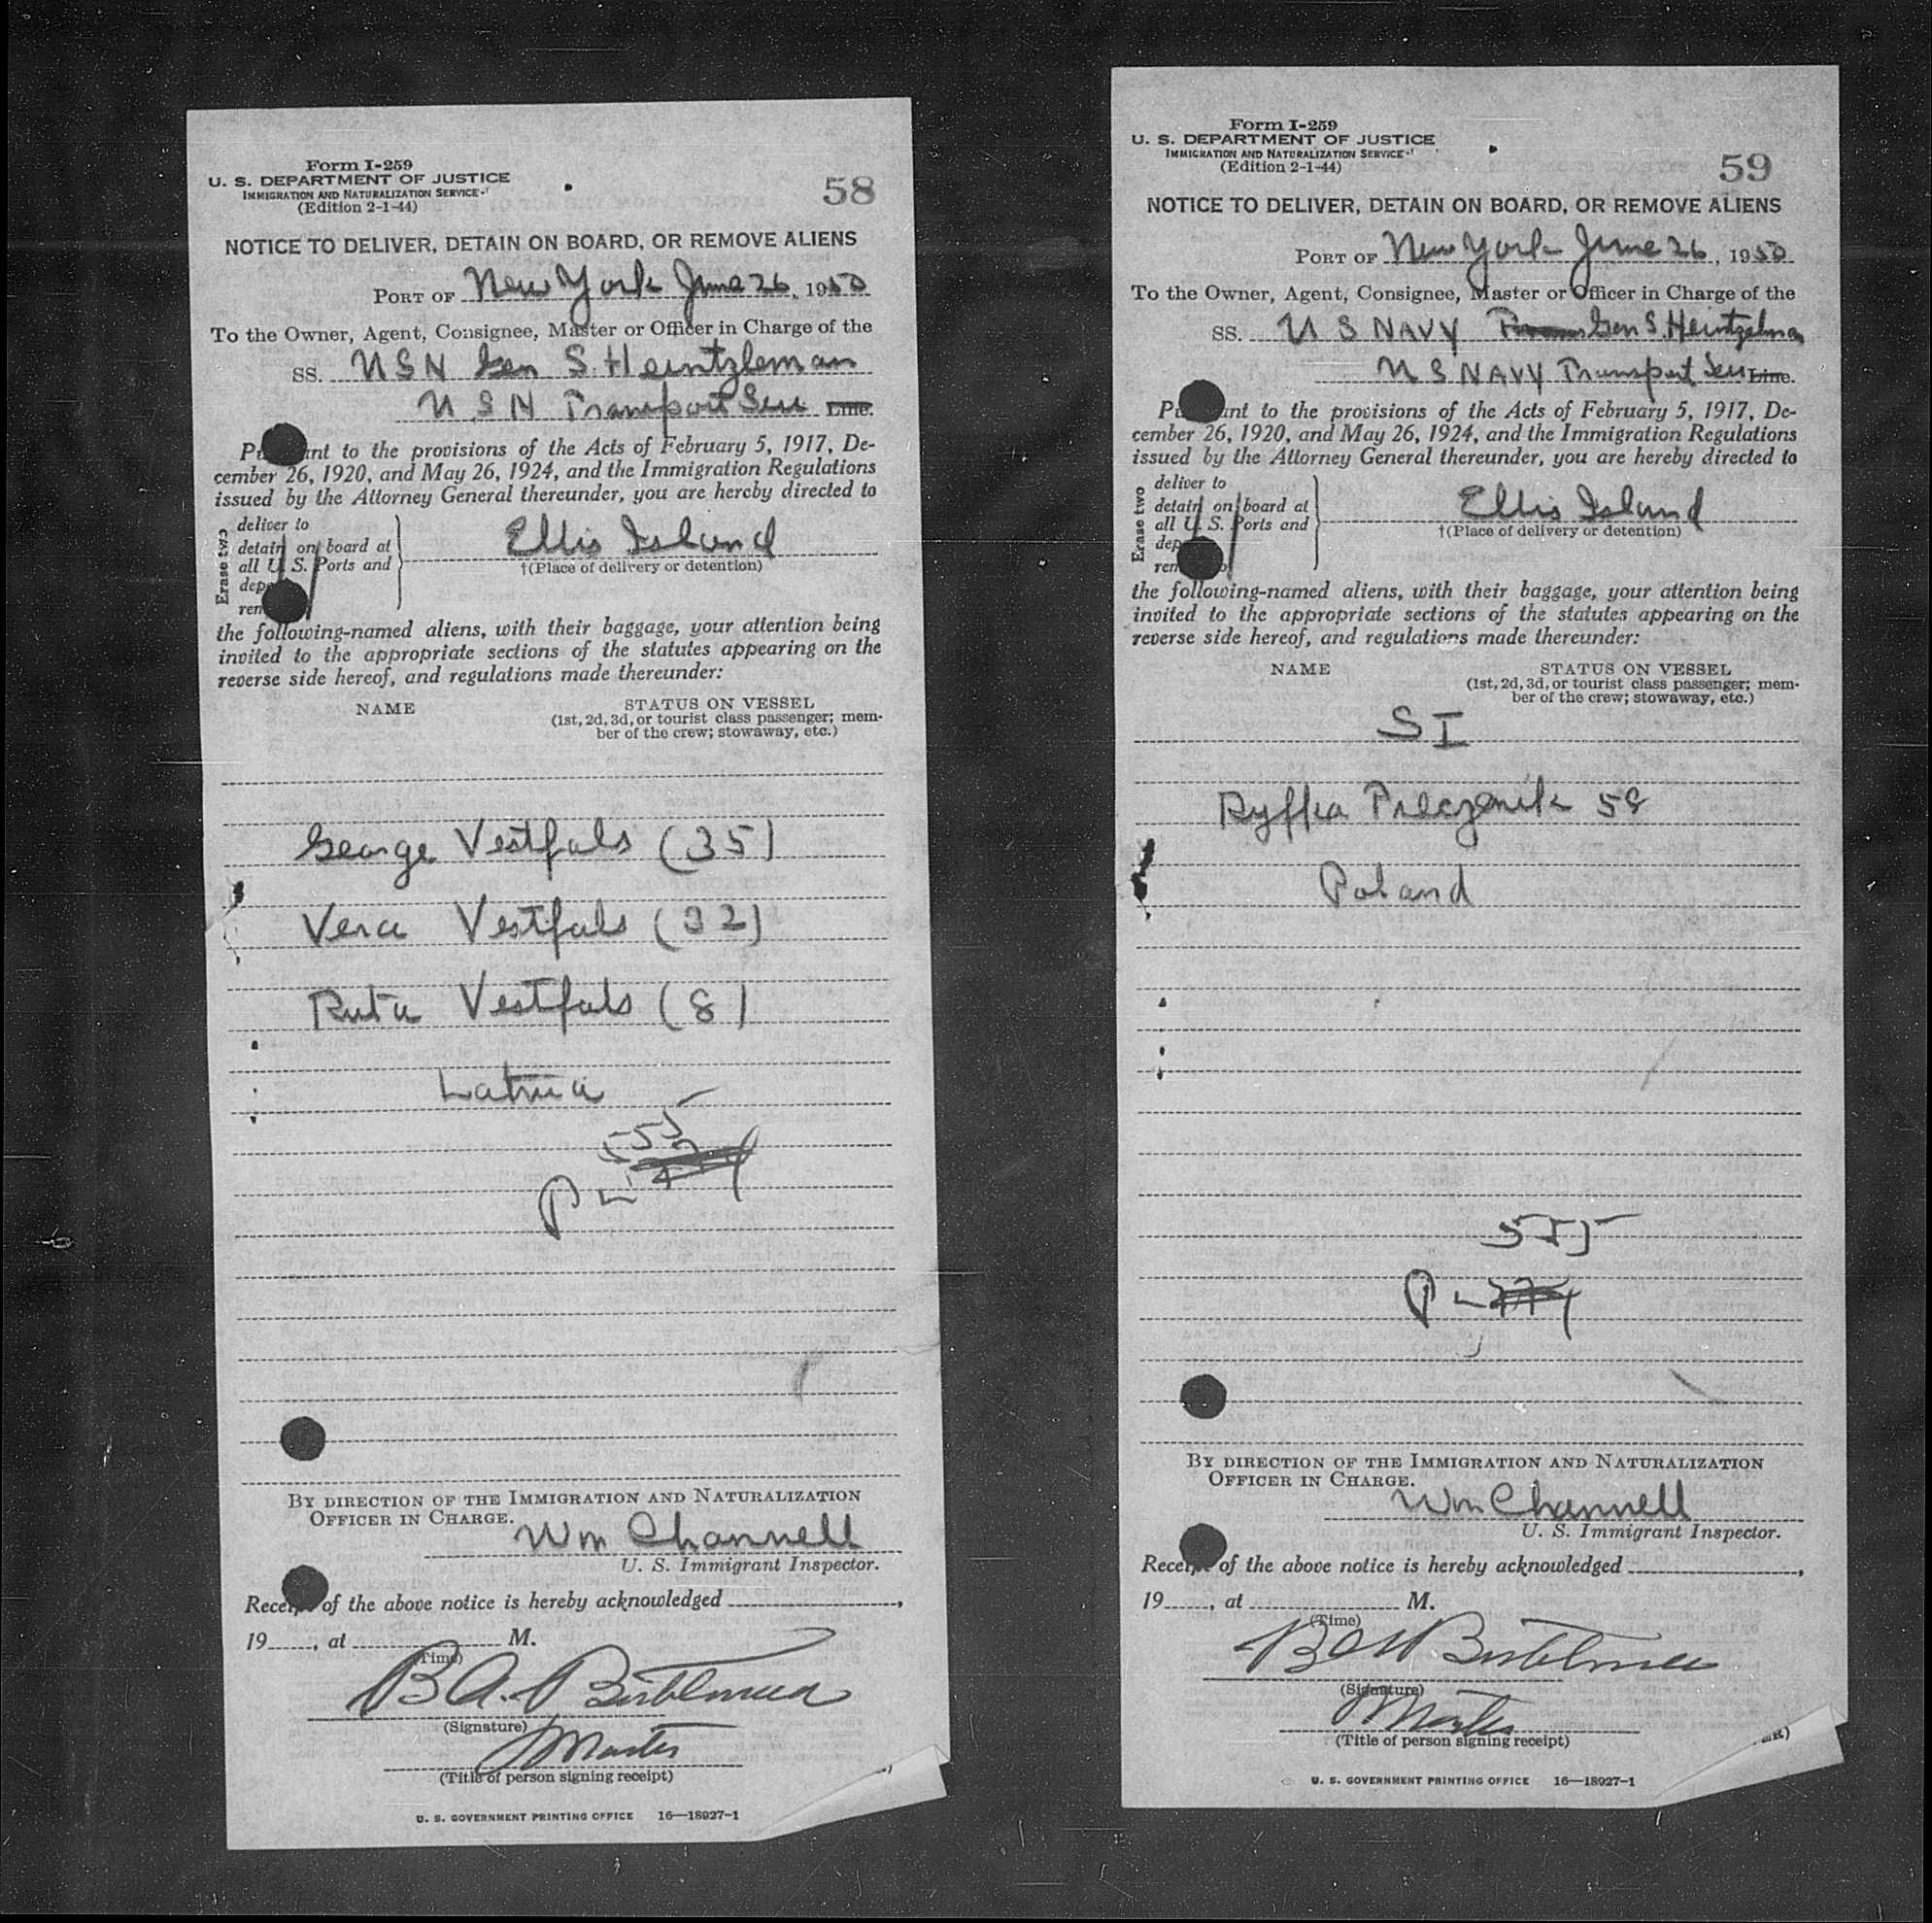 Form I-259
U. S. DEPARTMENT OF JUSTICE
IMMIGRATION AND NATURALIZATION SERVICE
(Edition 2-1-44)
58
NOTICE TO DELIVER, DETAIN ON BOARD, OR REMOVE ALIENS
PORT OF New York June 26, 1950
To the Owner, Agent, Consignee, Master or Officer in Charge of the
SS. USN Gen S. Heintzleman
USN Transport Serv Line.
Pu ant to the provisions of the Acts of February 5, 1917, De-
cember 26, 1920, and May 26, 1924, and the Immigration Regulations
issued by the Attorney General thereunder, you are hereby directed to
Erase two
deliver to
detain on board at
all U. S. Ports and
dep
rem
Ellis Island
†(Place of delivery or detention)
the following-named aliens, with their baggage, your attention being
invited to the appropriate sections of the statutes appearing on the
reverse side hereof, and regulations made thereunder:
NAME STATUS ON VESSEL
(1st, 2d, 3d, or tourist class passenger; mem-
ber of the crew; stowaway, etc.)
George Vestfals (35)
Vera Vestfals (32)
Ruta Vestfals (8)
Latvia
555
P-
BY DIRECTION OF THE IMMIGRATION AND NATURALIZATION
OFFICER IN CHARGE.
Wm Channell
U. S. Immigrant Inspector.
Receipt of the above notice is hereby acknowledged
19 , at M.
(Time)
B A.
(Signature)
Master
(Title of person signing receipt)
U. S. GOVERNMENT PRINTING OFFICE 16—18927-1
Form I-259
U. S. DEPARTMENT OF JUSTICE
IMMIGRATION AND NATURALIZATION SERVICE
(Edition 2-1-44)
59
NOTICE TO DELIVER, DETAIN ON BOARD, OR REMOVE ALIENS
PORT OF New York June 26, 1950
To the Owner, Agent, Consignee, Master or Officer in Charge of the
SS. US NAVY Gen S. Heintzelman
US NAVY Transport Serv Line.
Pu ant to the provisions of the Acts of February 5, 1917, De-
cember 26, 1920, and May 26, 1924, and the Immigration Regulations
issued by the Attorney General thereunder, you are hereby directed to
Erase two
deliver to
detain on board at
all U. S. Ports and
dep
rem
Ellis Island
†(Place of delivery or detention)
the following-named aliens, with their baggage, your attention being
invited to the appropriate sections of the statutes appearing on the
reverse side hereof, and regulations made thereunder:
NAME STATUS ON VESSEL
(1st, 2d, 3d, or tourist class passenger; mem-
ber of the crew; stowaway, etc.)
SI
Ryfka 58
Poland
555
P-
BY DIRECTION OF THE IMMIGRATION AND NATURALIZATION
OFFICER IN CHARGE.
Wm Channell
U. S. Immigrant Inspector.
Receipt of the above notice is hereby acknowledged
19 , at M.
(Time)
(Signature)
Master
(Title of person signing receipt)
U. S. GOVERNMENT PRINTING OFFICE 16—18927-1